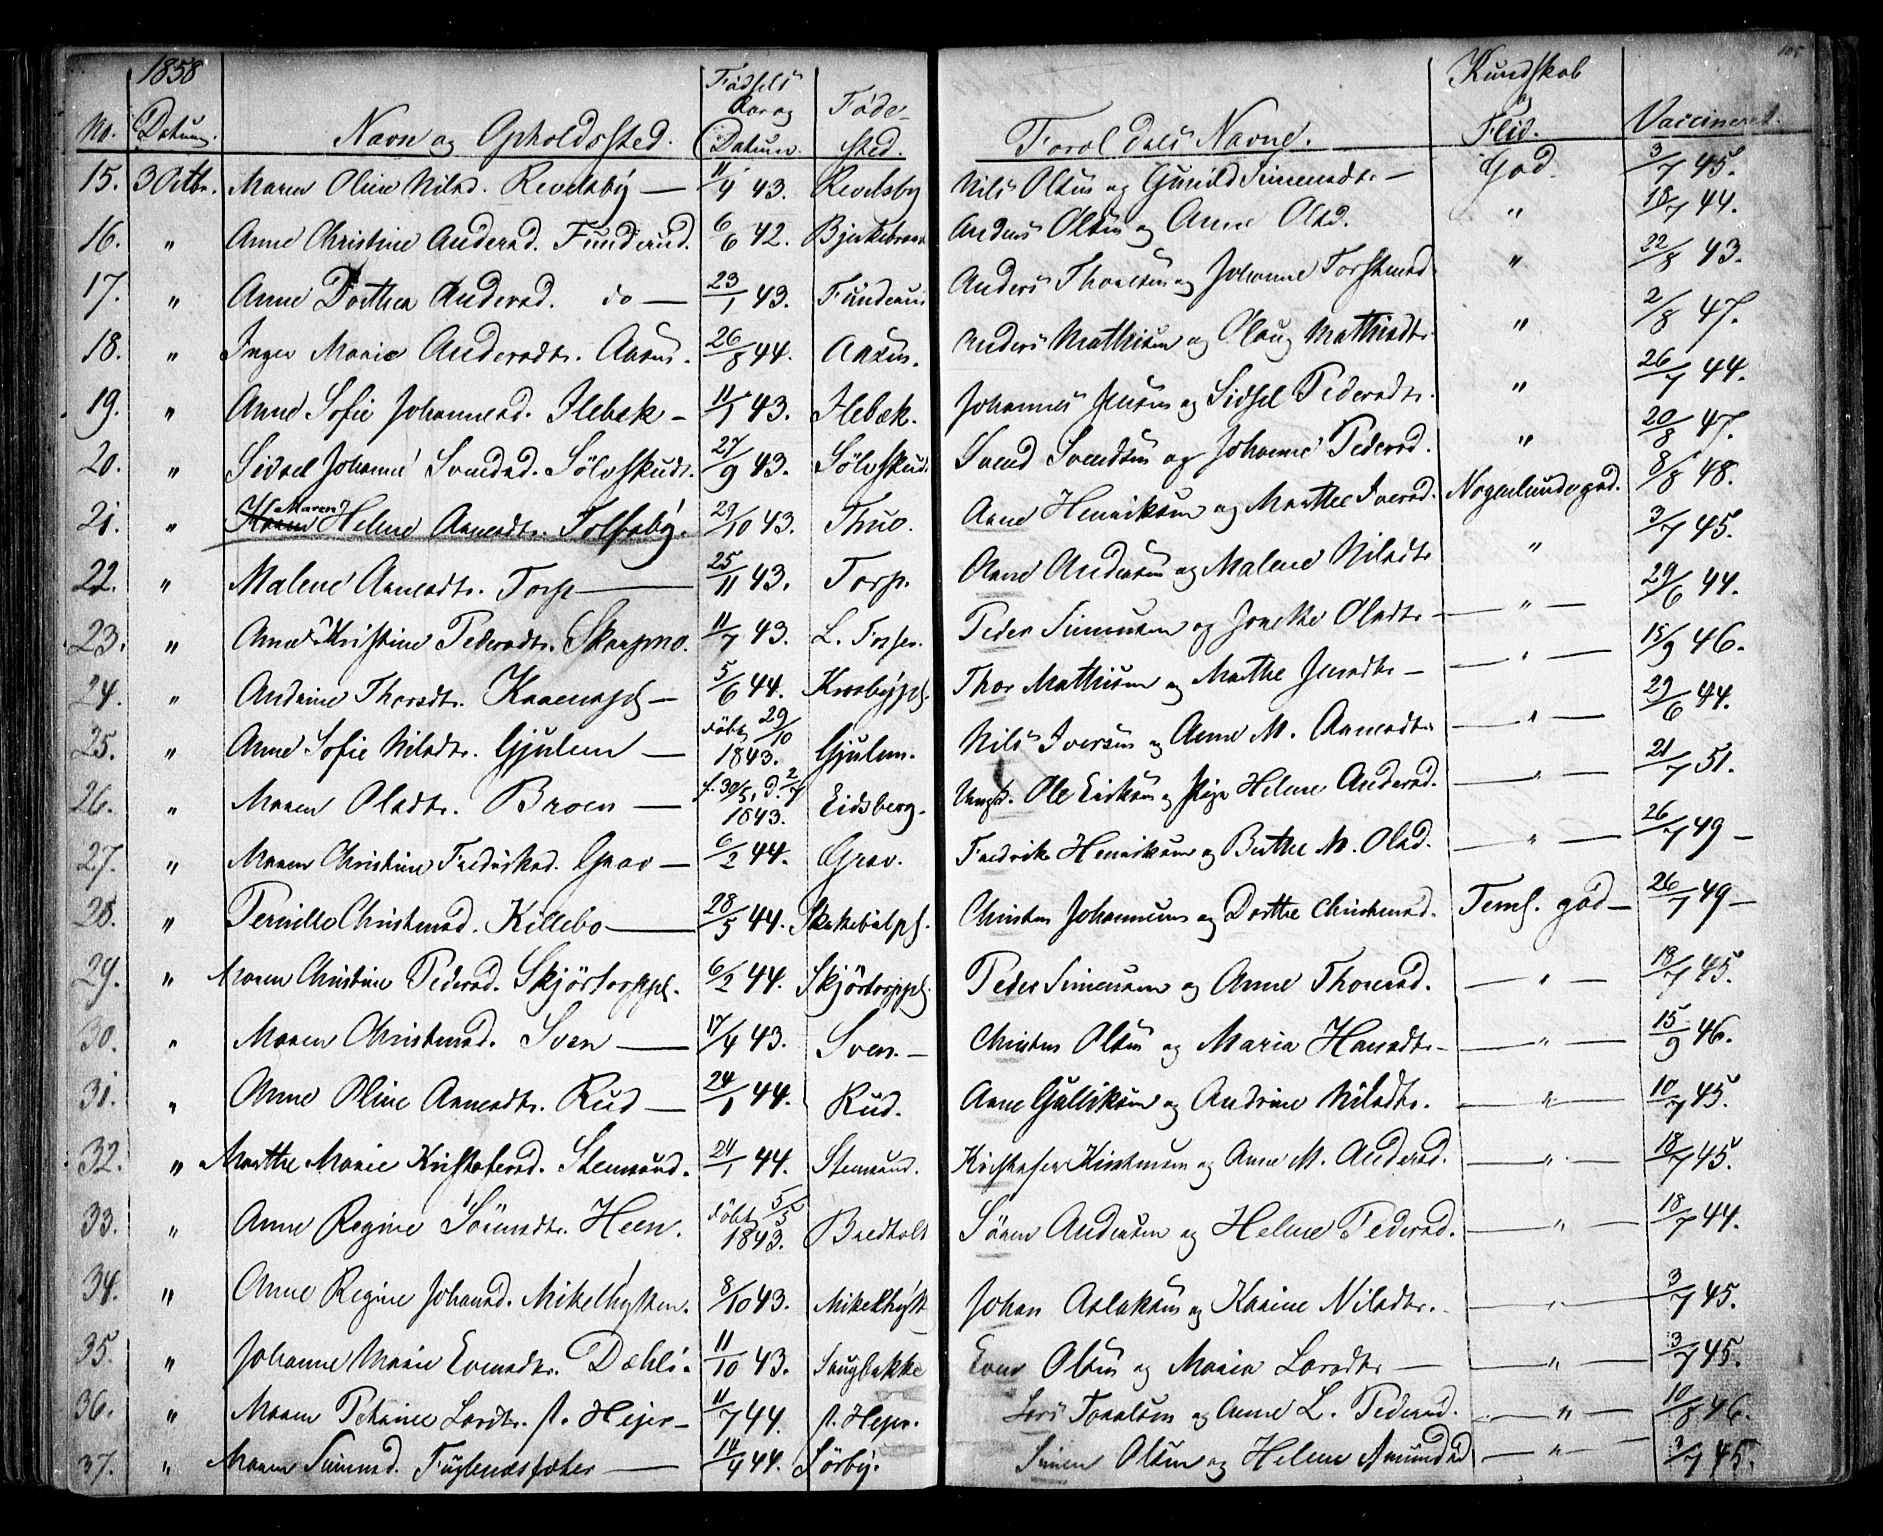 105
1858
No. Datum. Navn og Opholdssted. Fødsels Aar og Datum. Føde-sted. Forældres Navne. Kundskab & Flid. Vaccineret.
15. 3 Octbr. Maren Oline Nilsd. Revelsby — 11/4 43. Revelsby Nils Olsen og Gunild Simensdtr. — God. 3/7 45.
16. " Anne Christine Andersd. Funderud. 6/6 42. Anders Olsen og Anne Olsd. " 18/7 44.
17. " Anne Dorthea Andersd. do — 23/1 43. Funderud Anders Thoresen og Johanne Torstensd. " 22/8 43.
18. " Inger Marie Andersdtr. Aasen. 26/8 44. Aasen. Anders Mathisen og Olaug Mathisdtr. " 2/8 47.
19. " Anne Sofie Johannesd. Ilebæk — 11/1 43. Ilebæk. Johannes Jensen og Sidsel Pedersdtr. " 26/7 44.
20. " Sidsel Johanne Svendsd. Sölvskudt. 27/9 43. Sölvskud. Svend Svendsen og Johanne Pedersd. " 20/8 47.
21. " Karen Maren Helene Aanesdtr. Tolfsby. 29/10 43. Thuo. Aane Henriksen og Marthe Iversd. Nogenlunde god. 8/8 48.
22. " Malene Aanesdtr. Torp — 25/11 43. Torp. Aane Andersen og Malene Nilsdtr. " 3/7 45.
23. " Anne Kristine Pedersdtr. Skarpno. 11/7 43. L. Fosser. Peder Simensen og Olsdtr — " — 29/6 44.
24. " Andrine Thorsdtr. — 5/6 44. Krosbypl. Thor Mathisen og Marthe Jensdtr — " — 15/9 46.
25. " Anne Sofie Nilsdtr. Gjulem — Föbt 29/10 1843. Gjulem. Nils Iversen og Anne M. Aanesdtr. — " — 29/6 44.
26. " Maren Olsdtr. Broen — f. 30/5, d. 2/7 1843. Eidsberg. Ungk. Ole Eriksen og Pige Helene Andersd. — " — 21/7 51.
27. " Maren Christine Fredriksd. Grav — 6/2 44. Grav. Fredrik Henriksen og Berthe M. Olsd. — " — 26/7 49 —
28. " Pernille Christensd. Killebo — 28/5 44. Christen Johannesen og Dorthe Christensd. Teml. god — 26/7 49 —
29. " Maren Christine Pedersd. Skjörtorppl. 6/2 44. Skjörtorppl. Peder Simensen og Anne Thoresd. — " — 18/7 45.
30. " Maren Christensd. Sven — 17/4 43. Sven. — Christen Olsen og Maria Hansdtr — " — 15/9 46.
31. " Anne Oline Aanesdtr. Rud — 24/1 44. Rud. Aane Gulliksen og Andrine Nilsdtr. — " — 10/7 45.
32. " Marthe Marie Kristofersd. Stensrud. 24/1 44. Stensrud. Kristofer Kristensen og Anne M. Andersd. — " — 18/7 45.
33. " Anne Regine Sörensdtr. Heen. Föbt 5/5 1843. Bredholt Sören Andersen og Helene Pedersd. — " — 18/7 44.
34. " Anne Regine Johansd. Mikelhytten. 8/10 43. Mikelhytt Johan Aslaksen og Karine Nilsdtr. — " — 3/7 45.
35. " Johanne Marie Evensdtr. Dæhli. 11/10 43. Haugbakke Even Olsen og Maria Larsdtr — — " — 3/7 45.
36. " Maren Petrine Larsdtr. st. Hejer — 11/7 44. st. Hejer. Lars Toralsen og Anne L. Pedersd. — " — 10/8 46.
37. " Maren Simensd. Fuglenæsfeter — 14/4 44. Sörby. Simen Olsen og Helene Amundsd — " — 3/7 45.